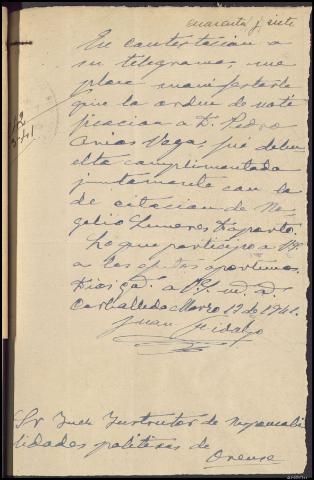 cuarenta y siete
En contestacion a
su telegrama, me
place manifestarle
que la orden de noti
ficacion a D. Pedro
Arias Vega, fué devu
elta cumplimentada
juntamente con la
de citacion de Ro
gelio Limeres Daparte.
Lo que participo a VS.
a los oportunos.
Dios gd. a VS. m. a.
Carballeda Marzo 12 de 1941.
Juan Fidalgo
Sr Juez Instructor de responsabi
lidades politicas de
Orense